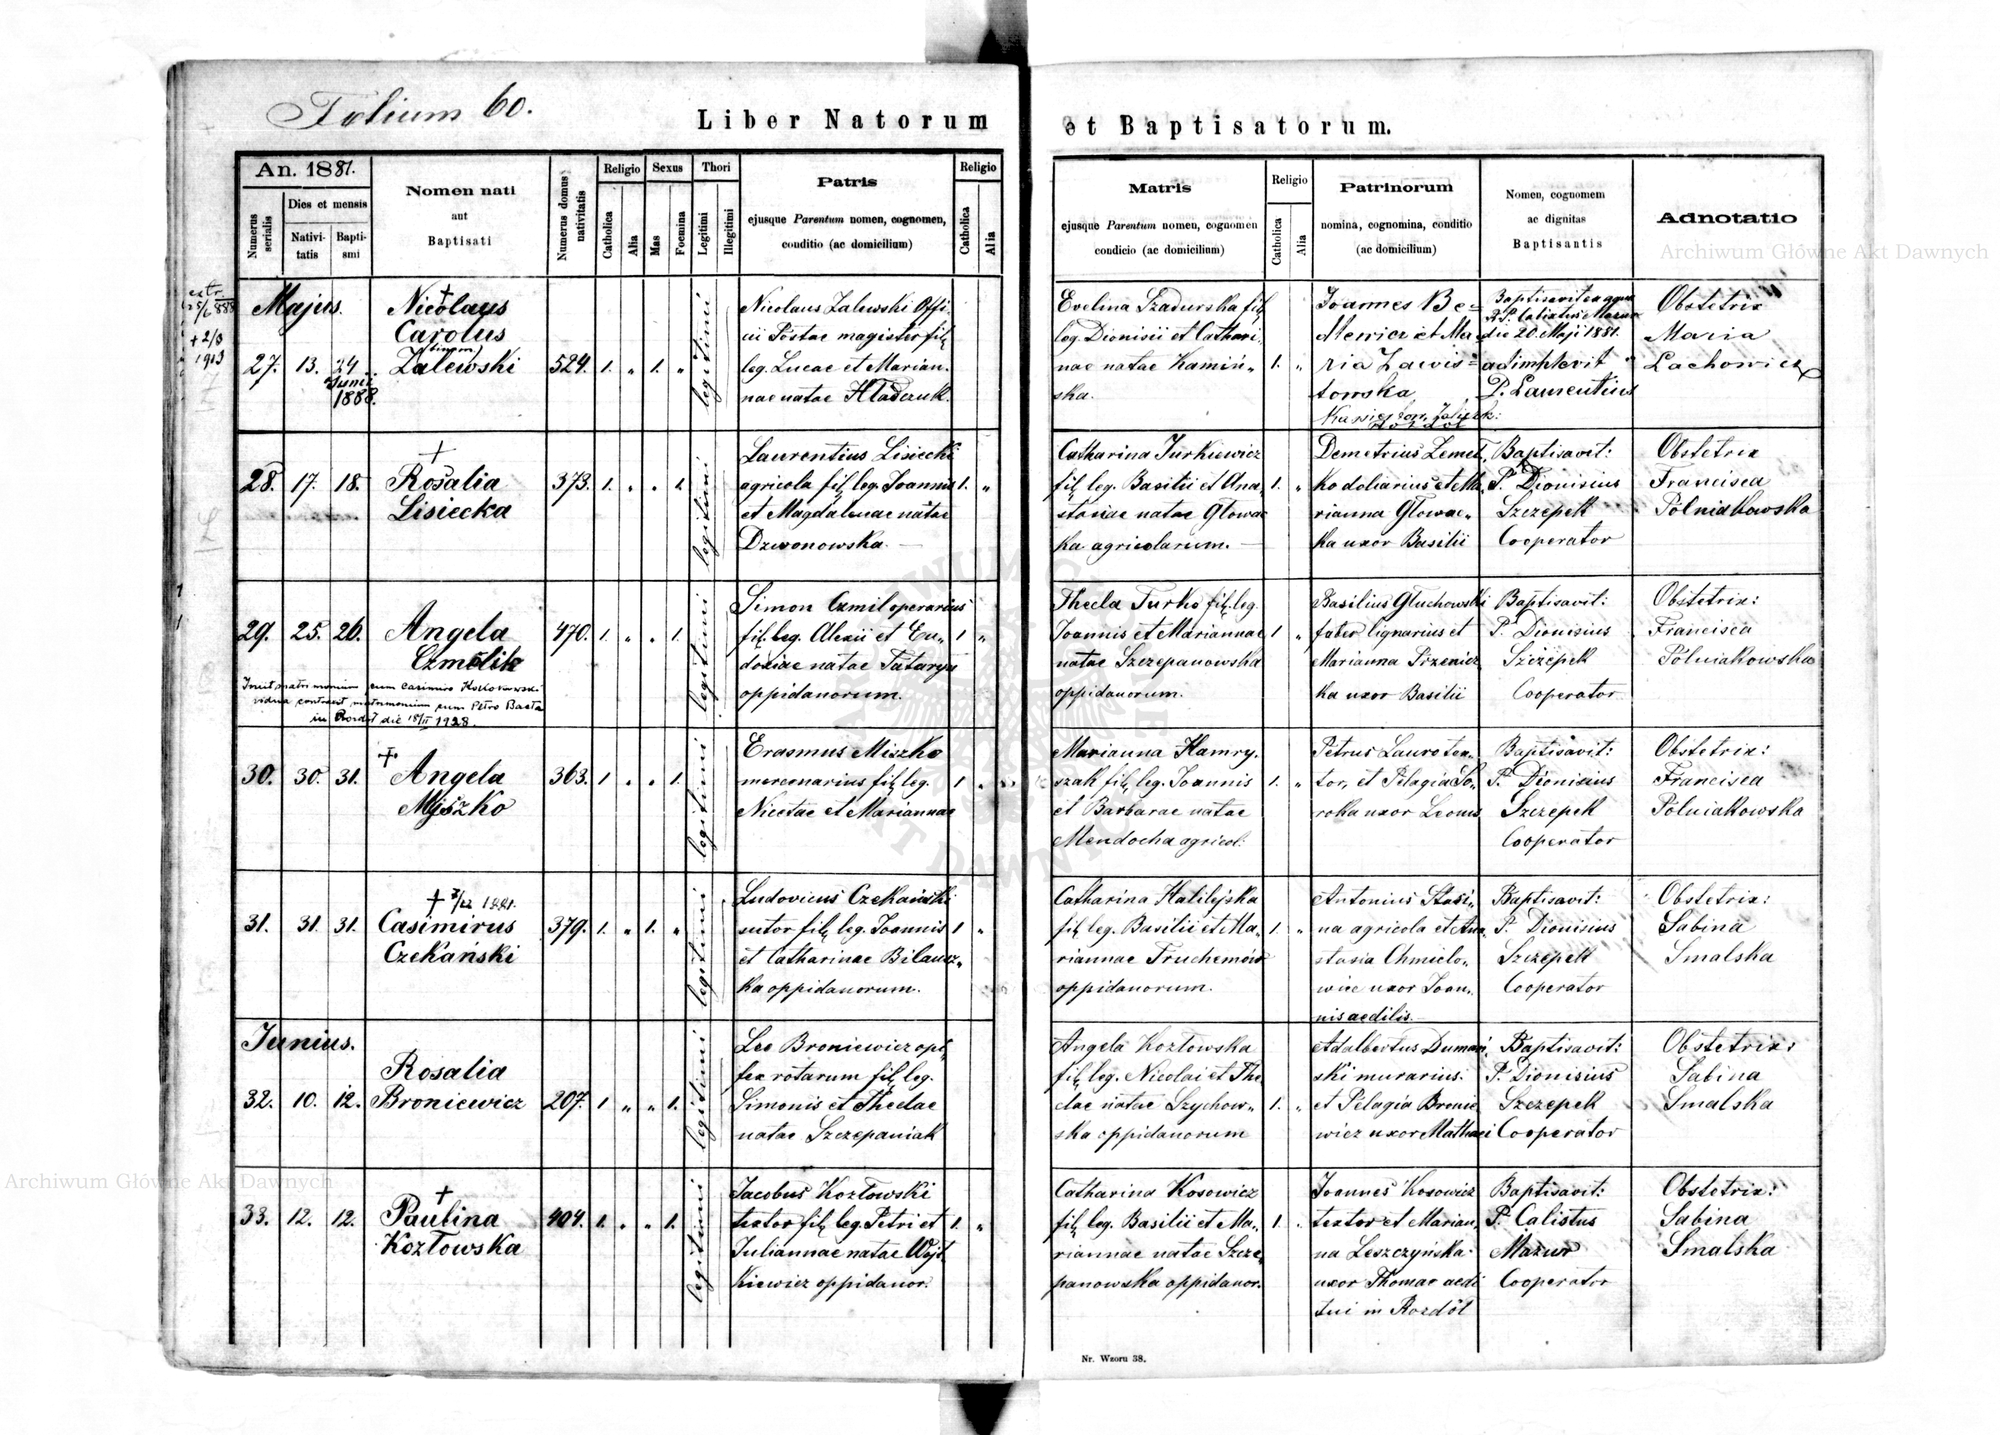 Folium 60.
Liber Natorum et Baptisatorum.
An. 1881.
Numerus serialis
Dies et mensis
Nativitatis
Baptismi
Nomen nati
aut
Baptisati
Numerus domus nativitatis
Religio
Catholica
Alia
Sexus
Mas
Foemina
Thori
Legitimi
Illegitimi
Patris
ejusque Parentum nomen, cognomen,
conditio (ac domicilium)
Religio
Catholica
Alia
Matris
ejusque Parentum nomen, cognomen
condicio (ac domicilium)
Religio
Catholica
Alia
Patrinorum
nomina, cognomina, conditio
(ac domicilium)
Nomen, cognomem
ac dignitas
Baptisantis
Adnotatio
Archiwum Główne Akt Dawnych
extr.
+ 2/3
1913
Majus.
27. 13. 24
Junii
1888.
Nicolaus
Carolus
Zalewski
524. 1. „ 1. „
legitimi
Nicolaus Zalewski Offi-
cii Postae magister fil.
leg. Lucae et Marian.
nae natae Hładczuk.
Evelina Szadurska fil.
leg. Dionisii et Cathari
nae natae Kamiń„
ska.
1. „
Joannes Be=
ria Zawis=
towska
Baptisavit ex aqua
R.P. Calixtus Mazur
die 20 Maji 1881.
adimplevit
P. Laurentius
Obstetrix
Maria
Lachowicz
28. 17. 18.
Rosalia
Lisiecka
373. 1. „ „ 1.
legitimi
Laurentius Lisiecki
agricola fil. leg. Joannis
et Magdalenae natae
Dzwonowska.
1. „
Catharina Jurkiewicz
fil. leg. Basilii et Ana„
stasiae natae Głowac
ka agricolarum.
1. „
Demetrius Zemeł
ko doliarius et Ma„
rianna Głowac„
ka uxor Basilii
Baptisavit:
P. Dionisius
Szczepek
Cooperator
Obstetrix
Francisca
Polniakowska
29. 25. 26.
Angela
Czmelik
470. 1. „ „ 1.
legitimi
Simon Czmil operarius
fil. leg. Alexii et Eu„
doxiae natae Tataryn
oppidanorum.
1 „
Thecla Turko fil. leg.
Joannis et Mariannae
natae Szczepanowska
oppidanorum.
1 „
Basilius Głuchowski
faber lignarius et
Marianna Pszenicz
ka uxor Basilii
Baptisavit:
P. Dionisius
Szczepek
Cooperator
Obstetrix:
Francisca
Polniakowska
Iniit matrimonium cum Casimiro
vidua contraxit matrimonium cum Petro Basta
in Rozdół die 18/II 1928.
30. 30. 31.
Angela
Myszko
363. 1. „ „ 1.
legitimi
Erasmus Miszko
mercenarius fil. leg.
Nicetae et Mariannae
1 „
Marianna Hamry.
szak fil. leg. Joannis
et Barbarae natae
Mendocha agricol:
1. „
Petrus Lauro tex„
tor, et Pelagia So„
roka uxor Leonis
Baptisavit:
P. Dionisius
Szczepek
Cooperator
Obstetrix:
Francisca
Polniakowska
31. 31. 31.
+ 3/12 1881.
Casimirus
Czekański
379. 1. „ 1. „
legitimi
Ludovicus Czekański
sutor fil. leg. Joannis
et Catharinae Bilansz„
ka oppidanorum.
1 „
Catharina Halilejska
fil. leg. Basilii et Ma„
riannae Truchemów
oppidanorum.
1. „
Antonius Stasi„
na agricola et Ana„
stasia Chmielo„
wicz uxor Joan„
nis aedilis.
Baptisavit:
P. Dionisius
Szczepek
Cooperator
Obstetrix:
Sabina
Smalska
Junius.
32. 10. 12.
Rosalia
Broniewicz
207. 1. „ „ 1.
legitimi
Leo Broniewicz opi„
fex rotarum fil. leg.
Simonis et Theclae
natae Szczepaniak
Angela Kozłowska
fil. leg. Nicolai et The
clae natae Szychow„
ska oppidanorum
1. „
Adalbertus Dumań„
ski murarius.
et Pelagia Bronie
wicz uxor Mathaei
Baptisavit:
P. Dionisius
Szczepek
Cooperator
Obstetrix:
Sabina
Smalska
33. 12. 12.
Paulina
Kozłowska
404. 1. „ „ 1.
legitimi
Jacobus Kozłowski
textor fil. leg. Petri et
Juliannae natae Wojt
kiewicz oppidanor.
1. „
Catharina Kosowicz
fil. leg. Basilii et Ma„
riannae natae Szcze„
panowska oppidanor.
1. „
Joannes Kosowicz
textor et Marian„
na Leszczyńska
uxor Thomae aedi
tui in Rozdół
Baptisavit:
P. Calistus
Mazur
Cooperator
Obstetrix:
Sabina
Smalska
Archiwum Główne Akt Dawnych
Nr. Wzoru 38.